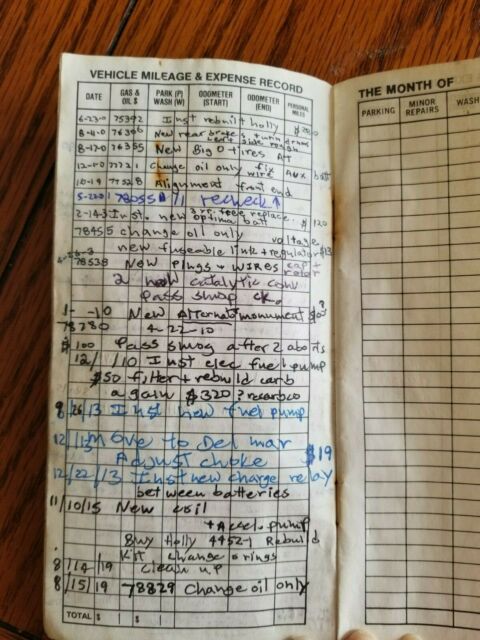 VEHICLE MILEAGE & EXPENSE RECORD
DATE GAS & OIL $ PARK (P) WASH (W) ODOMETER (START) ODOMETER (END) PERSONAL MILES
6-23-0 75392 Inst rebuilt holly
8-4-0 76306 New rear brakes + turn drums
8-17-00 76355 New Big O tires AT
12-1-00 77221 Change oil only fix wire Aux batt
10-19 77528 Alignment front end
5-2001 78055 recheck ↑
2-14-3 Inst. new optima batt 3 yr. free replace. $120
78455 change oil only voltage
new fuseable link + regulator $13
78538 New Plugs + WIRES cap + rotor
2 new catalytic conv
Pass smog ck.
1- -10 New Alternator monument
78780 4-22-10
$100 Pass smog after 2 aborts
12/1/10 Inst elec fuel pump
$50 filter + rebuild carb
again $320
8/26/13 Inst new fuel pump
12/1/13 Move to Del mar
Adjust choke $19
12/22/13 Inst new charge relay
between batteries
11/10/15 New coil
+ Accel. pump
Buy Holly 4452-1 Rebuild
Kit change o rings
8/14/19 clean up
8/15/19 78829 Change oil only
TOTAL $ $
THE MONTH OF
PARKING MINOR REPAIRS WASH